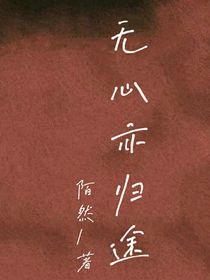 无心亦归途
陌然/著